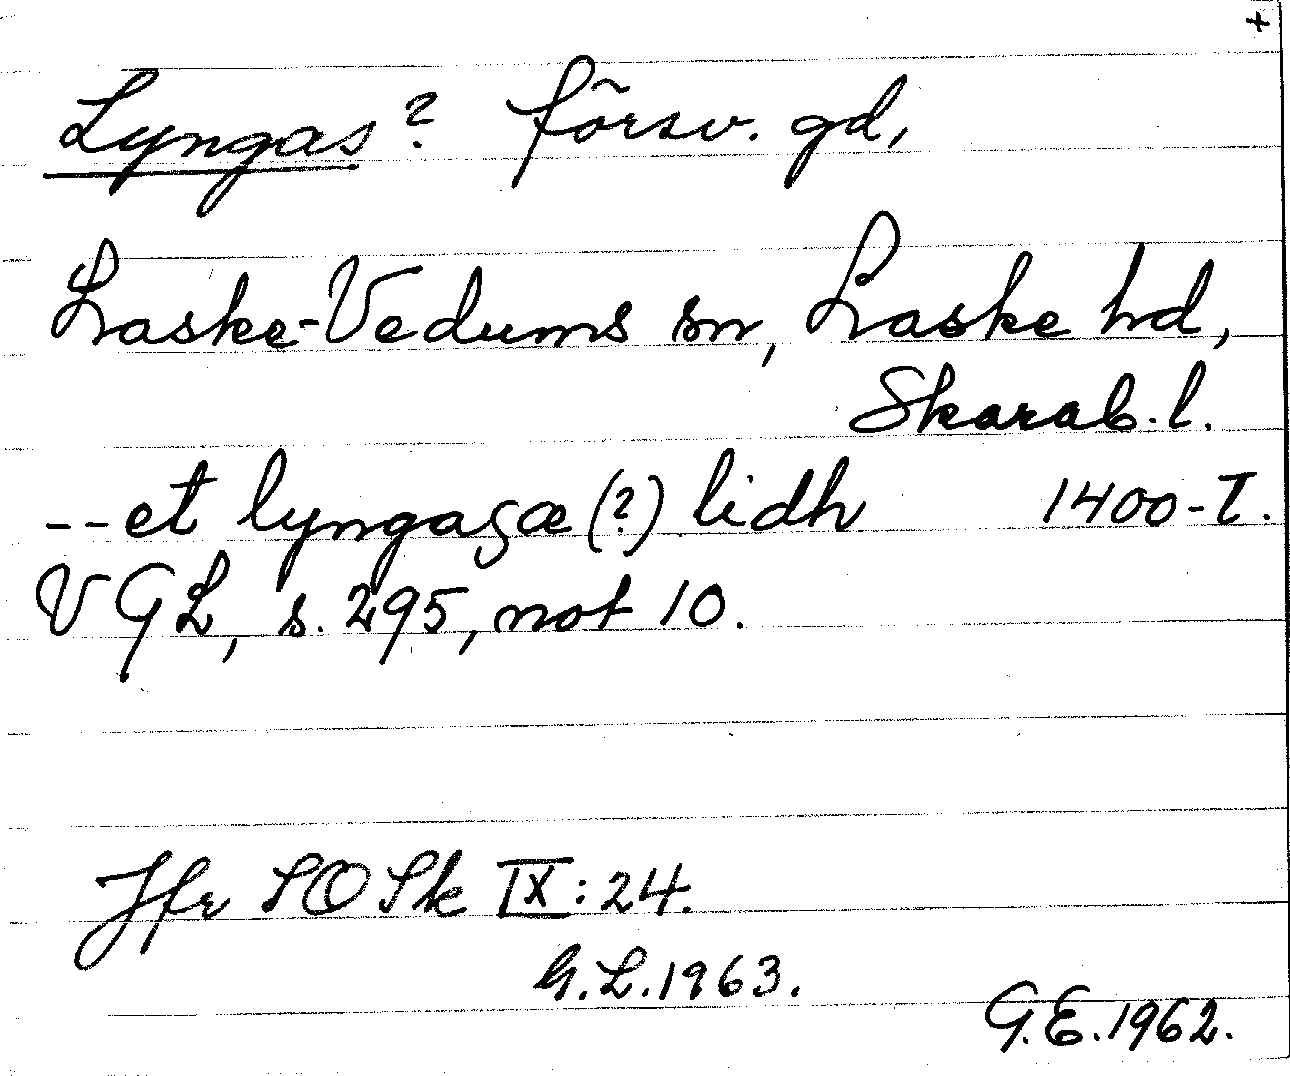 +
Lyngas? försv. gd,
Laske-Vedums sn, Laske hd,
Skarab. l.
--et lyngaʒæ (?) lidh 1400-T.
VGL, s. 295, not 10.
Jfr SOSk IX:24.
G.L. 1963.
G.E. 1962.